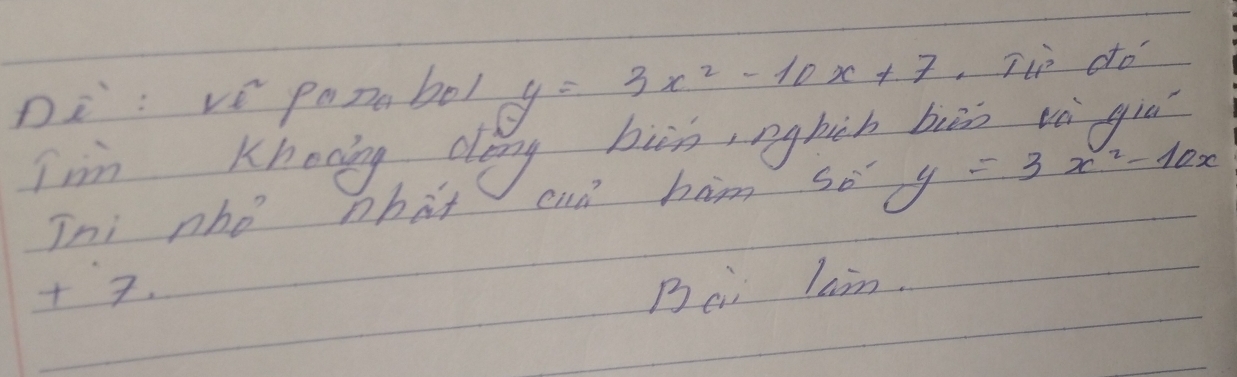 Đề : vẽ parabol y = 3x² - 10x + 7. Từ đó
Tìm khoảng đồng biến, nghịch biến và giá
Trị nhỏ nhất của hàm số y = 3x² - 10x
+ 7.
Bài làm.